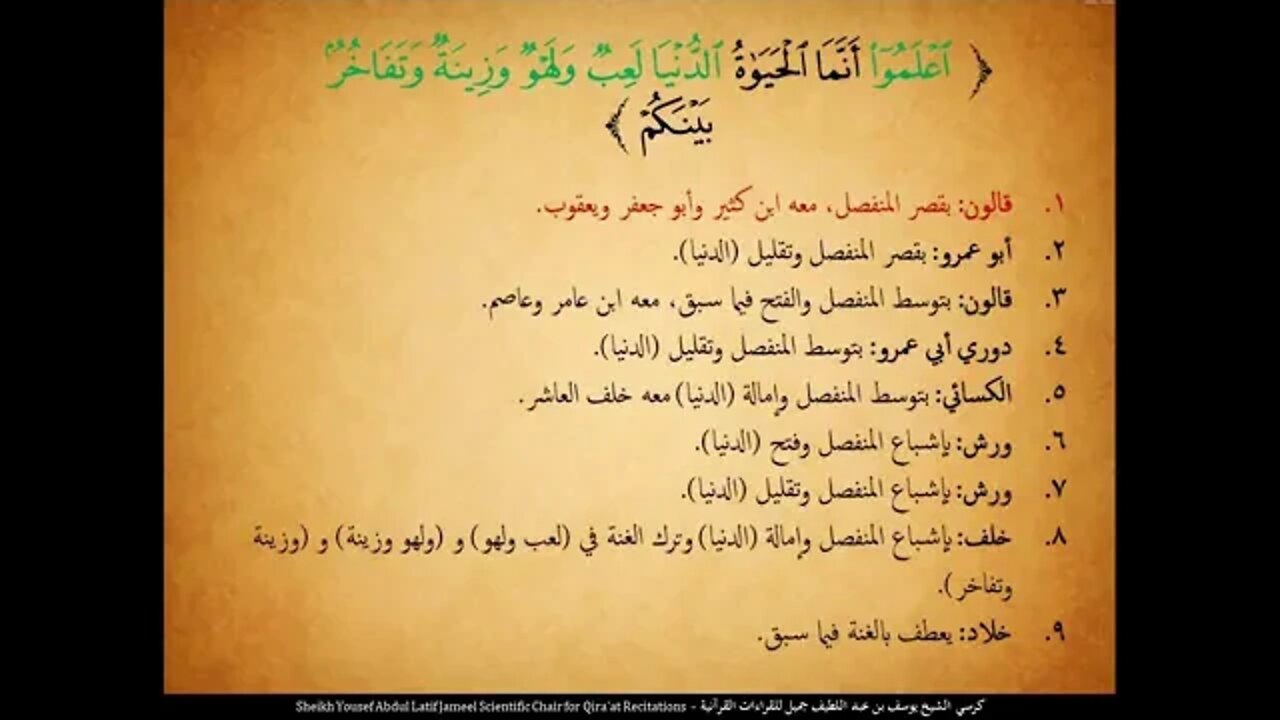 ﴿ ٱعۡلَمُوٓاْ أَنَّمَا ٱلۡحَيَوٰةُ ٱلدُّنۡيَا لَعِبٞ وَلَهۡوٞ وَزِينَةٞ وَتَفَاخُرُۢ
بَيۡنَكُمۡ ﴾
١. قالون: بقصر المنفصل، معه ابن كثير وأبو جعفر ويعقوب.
٢. أبو عمرو: بقصر المنفصل وتقليل (الدنيا).
٣. قالون: بتوسط المنفصل والفتح فيما سبق، معه ابن عامر وعاصم.
٤. دوري أبي عمرو: بتوسط المنفصل وتقليل (الدنيا).
٥. الكسائي: بتوسط المنفصل وإمالة (الدنيا) معه خلف العاشر.
٦. ورش: بإشباع المنفصل وفتح (الدنيا).
٧. ورش: بإشباع المنفصل وتقليل (الدنيا).
٨. خلف: بإشباع المنفصل وإمالة (الدنيا) وترك الغنة في (لعب ولهو) و (ولهو وزينة) و (وزينة
وتفاخر).
٩. خلاد: يعطف بالغنة فيما سبق.
كرسي الشيخ يوسف بن عبد اللطيف جميل للقراءات القرآنية - Sheikh Yousef Abdul Latif Jameel Scientific Chair for Qira'at Recitations